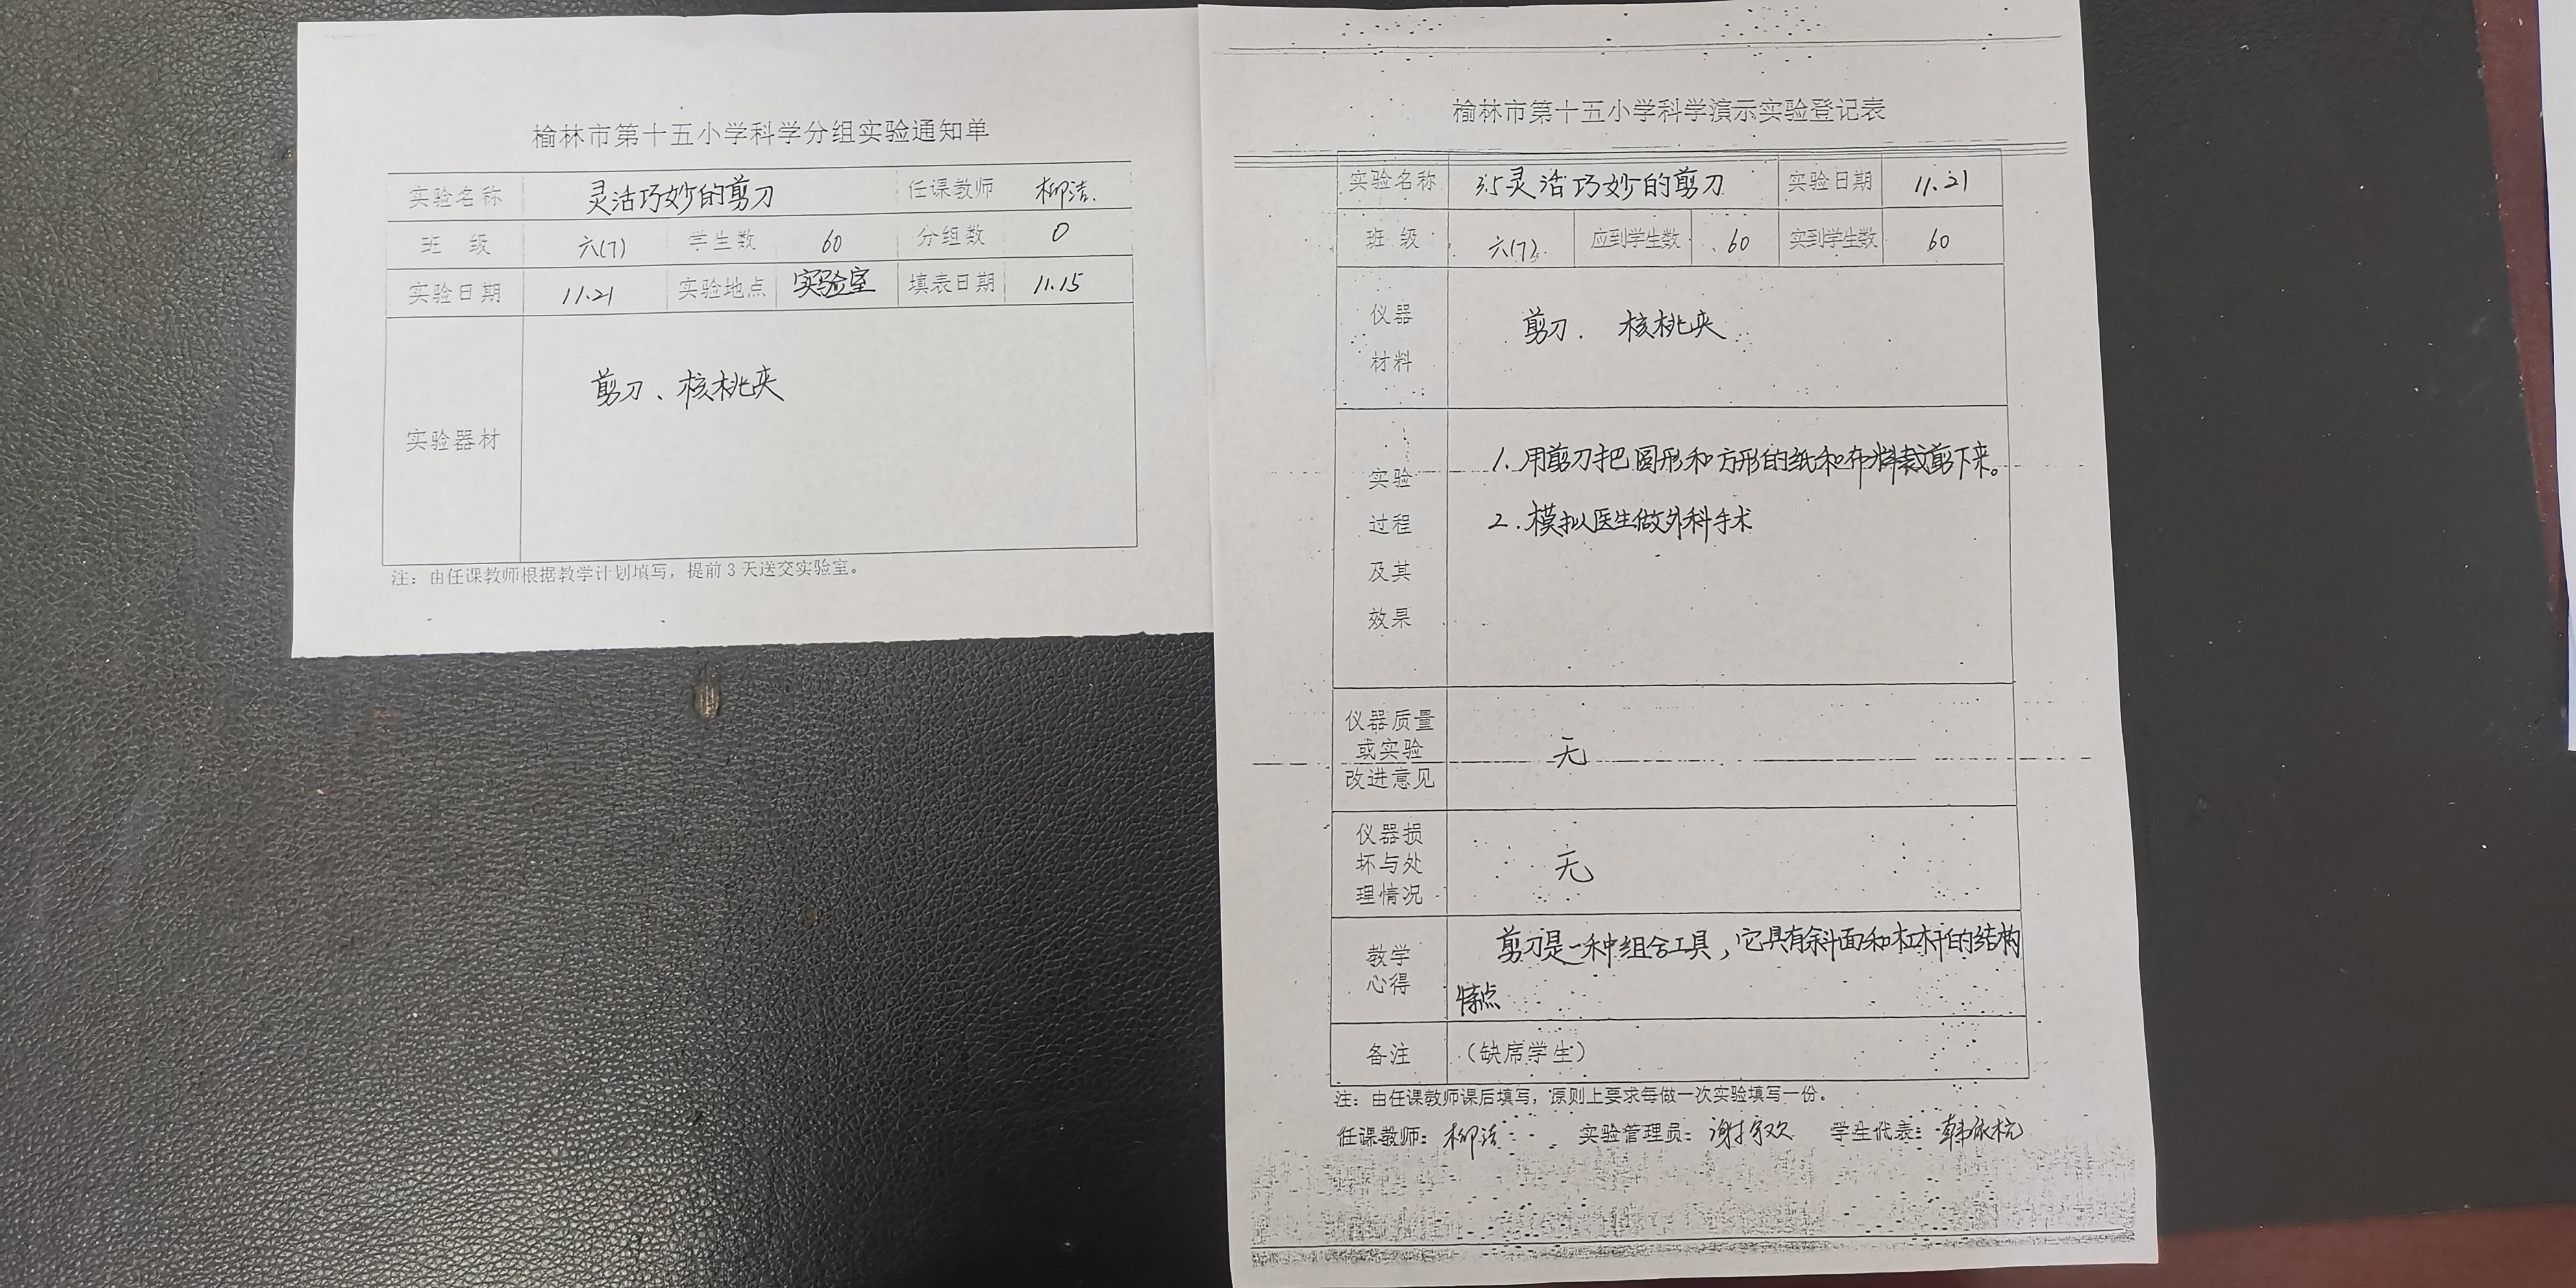 榆林市第十五小学科学分组实验通知单
实验名称 灵活巧妙的剪刀 任课教师 柳洁
班 级 六(7) 学生数 60 分组数 0
实验日期 11.21 实验地点 实验室 填表日期 11.15
实验器材 剪刀、核桃夹
注：由任课教师根据教学计划填写，提前3天送交实验室。
榆林市第十五小学科学演示实验登记表
实验名称 3.5灵活巧妙的剪刀 实验日期 11.21
班 级 六(7) 应到学生数 60 实到学生数 60
仪器
材料
剪刀. 核桃夹
实验
过程
及其
效果
1. 用剪刀把圆形和方形的纸和布料裁剪下来。
2. 模拟医生做外科手术
仪器质量
或实验
改进意见
无
仪器损
坏与处
理情况
无
教学
心得
剪刀是一种组合工具，它具有斜面和杠杆的结构
特点
备注 （缺席学生）
注：由任课教师课后填写，原则上要求每做一次实验填写一份。
任课教师：柳洁 实验管理员： 学生代表：